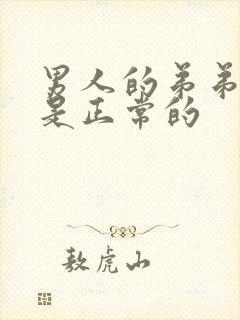 男人的弟弟
是正常的
敖虎山